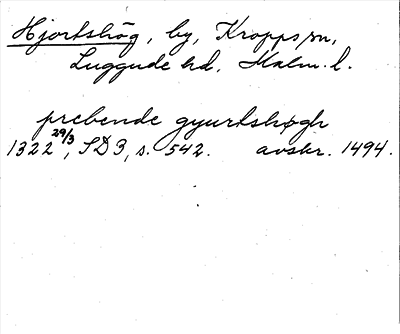 Hjortshög, by, Kropps sn,
Luggude hd, Malm. l.
prebende gyurtshøgh
1322 29/3, SD3, s. 542. avskr. 1494.